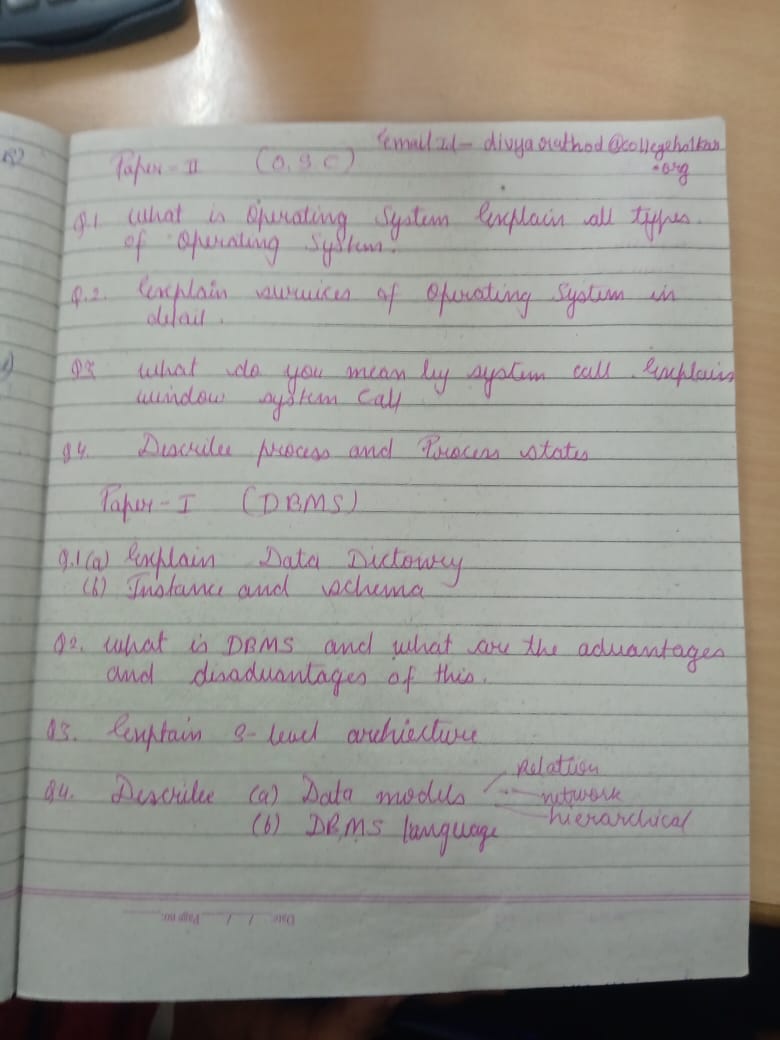 Email Id - divyarathod@collegeholkar
.org
Paper - II (O.S C)
Q.1. What is Operating System Explain all types.
of Operating System.
Q.2. Explain survices of Operating System in
detail.
Q3 what do you mean by system call. Explain
window system Call
Q4. Describe process and Process states
Paper - I (DBMS)
Q.1 (a) Explain Data Dictonary
(b) Instance and schema
Q2. What is DBMS and what are the advantages
and disadvantages of this.
Q3. Explain 3-level archiecture
Relation
Q4. Describe (a) Data models network
hierarchical
(b) DBMS language
Date / / Page no.